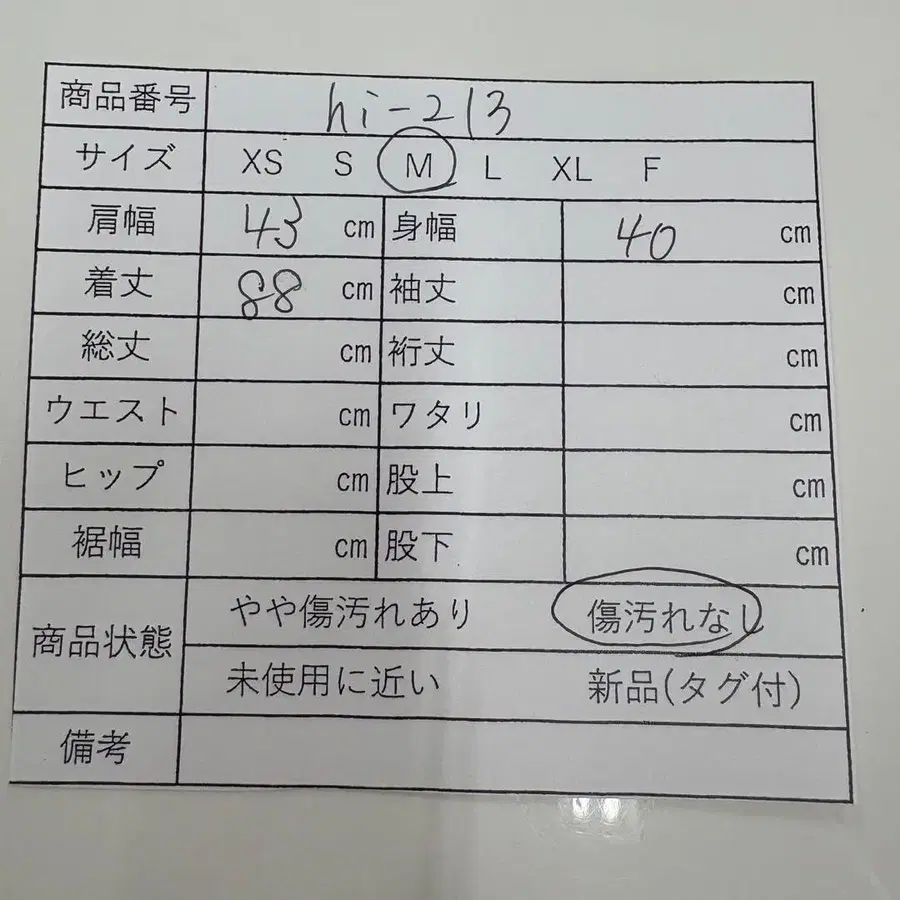 商品番号 hi-213
サイズ XS S M L XL F
肩幅 43 cm 身幅 40 cm
着丈 88 cm 袖丈 cm
総丈 cm 裄丈 cm
ウエスト cm ワタリ cm
ヒップ cm 股上 cm
裾幅 cm 股下 cm
商品状態 やや傷汚れあり 傷汚れなし
未使用に近い 新品(タグ付)
備考